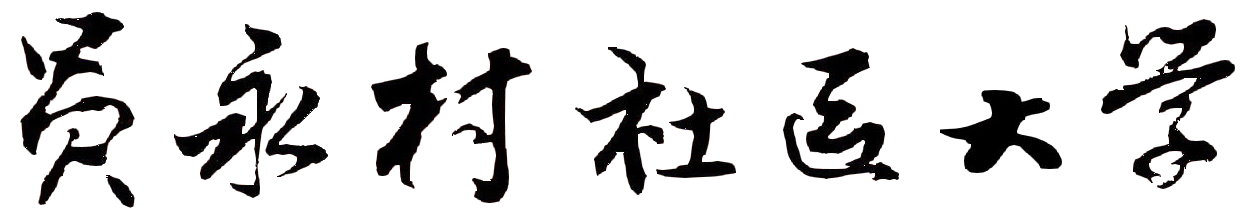 员永村社区大学